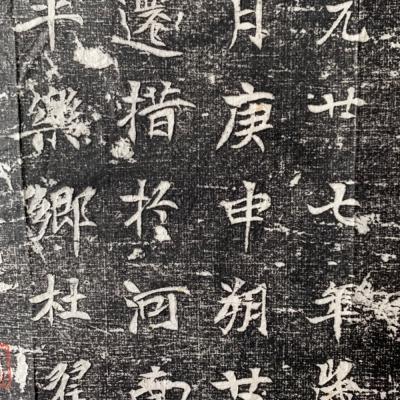 元廿七年歲
月庚申朔廿
遷措於河南
平樂鄉杜翟